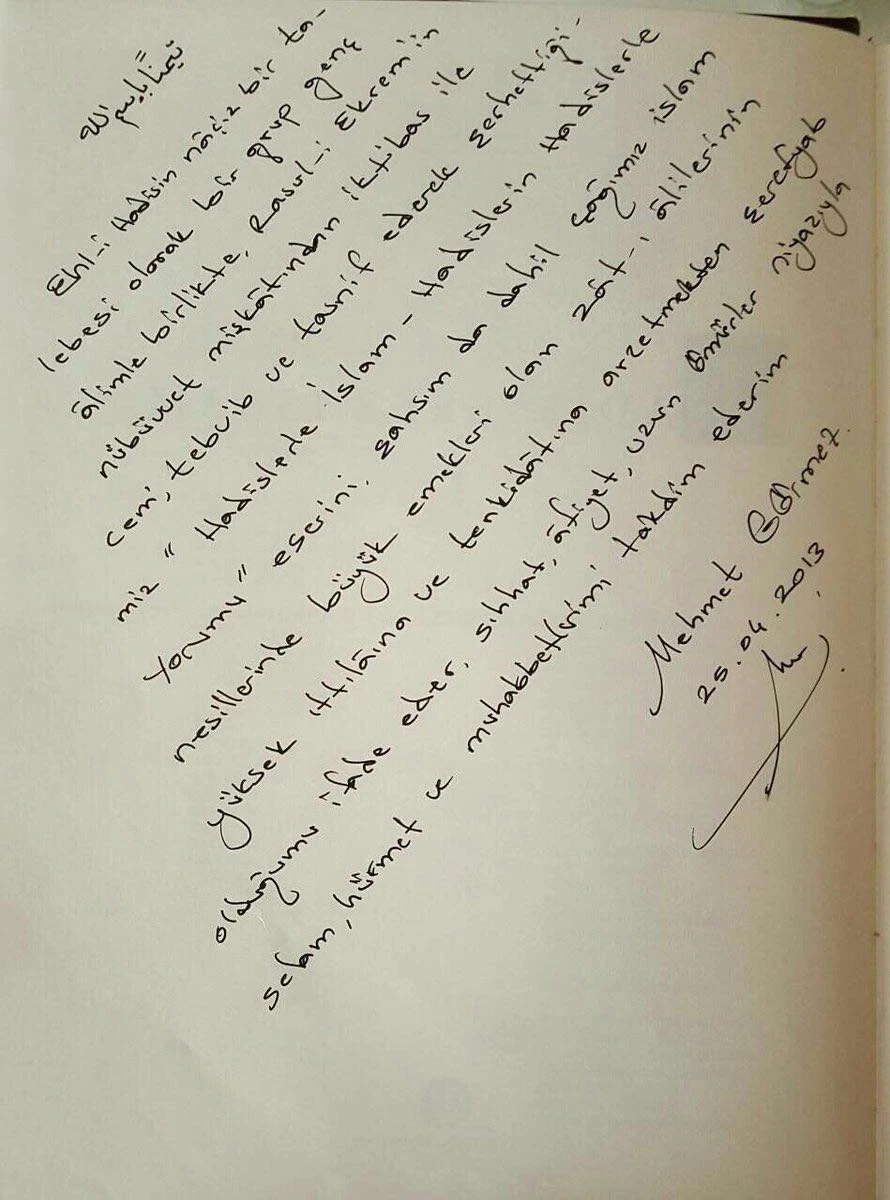 تيمناً باسم الله
Ehl-i Hadisin nâçiz bir ta-
lebesi olarak bir grup genç
âlimle birlikte, Rasul-i Ekrem'in
nübüvvet mişkâtından iktibas ile
cem', tebvib ve tasnif ederek şerhettiği-
miz "Hadislerle İslam - Hadislerin Hadislerle
Yorumu" eserini, şahsım da dahil çağımız islam
nesillerinde büyük emekleri olan zât-ı âlilerinin
yüksek ıttılâına ve tenkidâtına arzetmekten şerefyab
olduğumu ifade eder, sıhhat, âfiyet, uzun ömürler niyazıyla
selam, hürmet ve muhabbetlerimi takdim ederim
Mehmet Görmez
25.04.2013